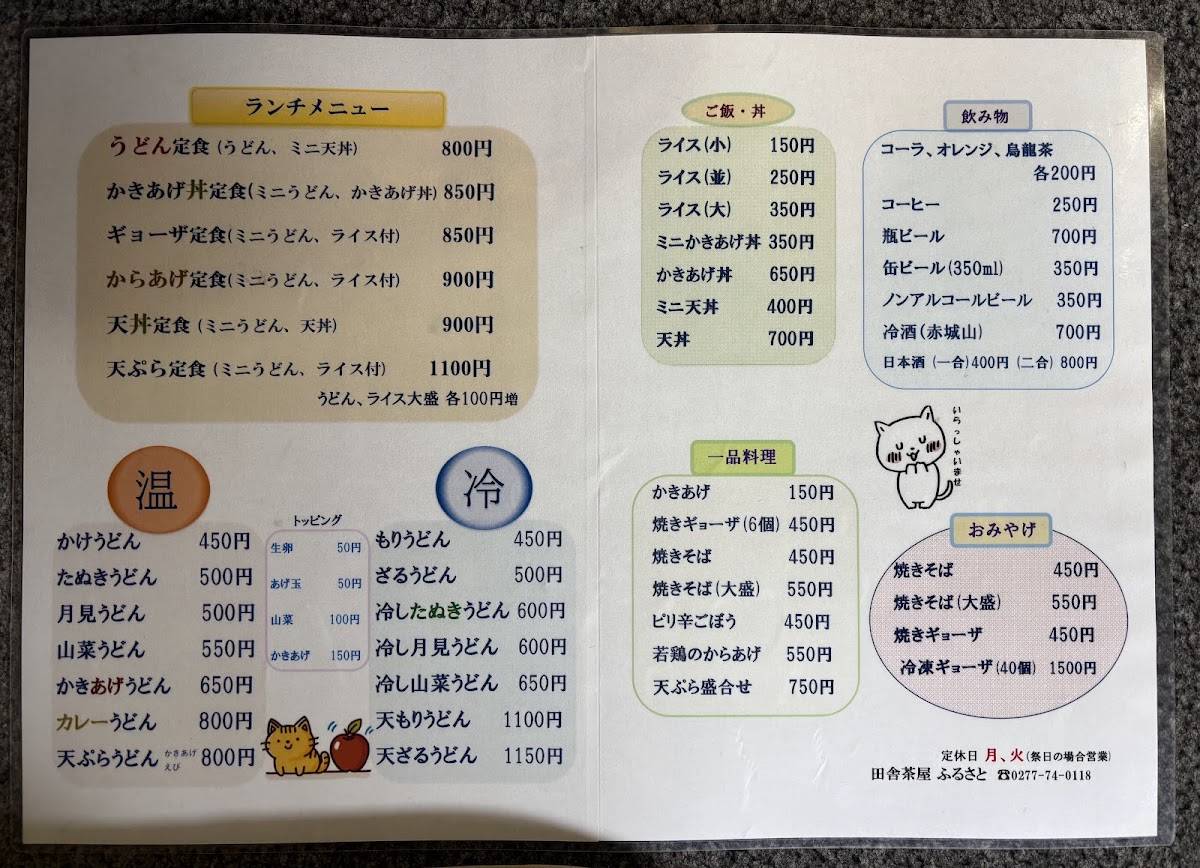 ランチメニュー
うどん定食 (うどん、ミニ天丼) 800円
かきあげ丼定食(ミニうどん、かきあげ丼) 850円
ギョーザ定食(ミニうどん、ライス付) 850円
からあげ定食(ミニうどん、ライス付) 900円
天丼定食 (ミニうどん、天丼) 900円
天ぷら定食 (ミニうどん、ライス付) 1100円
うどん、ライス大盛 各100円増
温
かけうどん 450円
たぬきうどん 500円
月見うどん 500円
山菜うどん 550円
かきあげうどん 650円
カレーうどん 800円
天ぷらうどん かきあげ えび 800円
トッピング
生卵 50円
あげ玉 50円
山菜 100円
かきあげ 150円
冷
もりうどん 450円
ざるうどん 500円
冷したぬきうどん 600円
冷し月見うどん 600円
冷し山菜うどん 650円
天もりうどん 1100円
天ざるうどん 1150円
ご飯・丼
ライス(小) 150円
ライス(並) 250円
ライス(大) 350円
ミニかきあげ丼 350円
かきあげ丼 650円
ミニ天丼 400円
天丼 700円
飲み物
コーラ、オレンジ、烏龍茶
各200円
コーヒー 250円
瓶ビール 700円
缶ビール(350ml) 350円
ノンアルコールビール 350円
冷酒(赤城山) 700円
日本酒 (一合)400円 (二合) 800円
いらっしゃいませ
一品料理
かきあげ 150円
焼きギョーザ(6個) 450円
焼きそば 450円
焼きそば(大盛) 550円
ピリ辛ごぼう 450円
若鶏のからあげ 550円
天ぷら盛合せ 750円
おみやげ
焼きそば 450円
焼きそば(大盛) 550円
焼きギョーザ 450円
冷凍ギョーザ(40個) 1500円
定休日 月、火(祭日の場合営業)
田舎茶屋 ふるさと ☎0277-74-0118